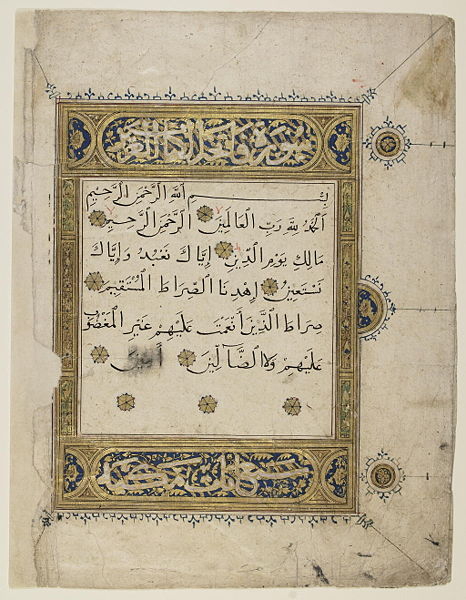 سورة فاتحة الكتاب
بِسْمِ اللهِ الرَّحْمٰنِ الرَّحِيمِ
اَلْحَمْدُ لِلّٰهِ رَبِّ الْعَالَمِينَ الرَّحْمٰنِ الرَّحِيمِ
مَالِكِ يَوْمِ الدِّينِ إِيَّاكَ نَعْبُدُ وَإِيَّاكَ
نَسْتَعِينُ اِهْدِنَا الصِّرَاطَ الْمُسْتَقِيمَ
صِرَاطَ الَّذِينَ أَنْعَمْتَ عَلَيْهِمْ غَيْرِ الْمَغْضُوبِ
عَلَيْهِمْ وَلَا الضَّالِّينَ آمين
سبع آيات مكية